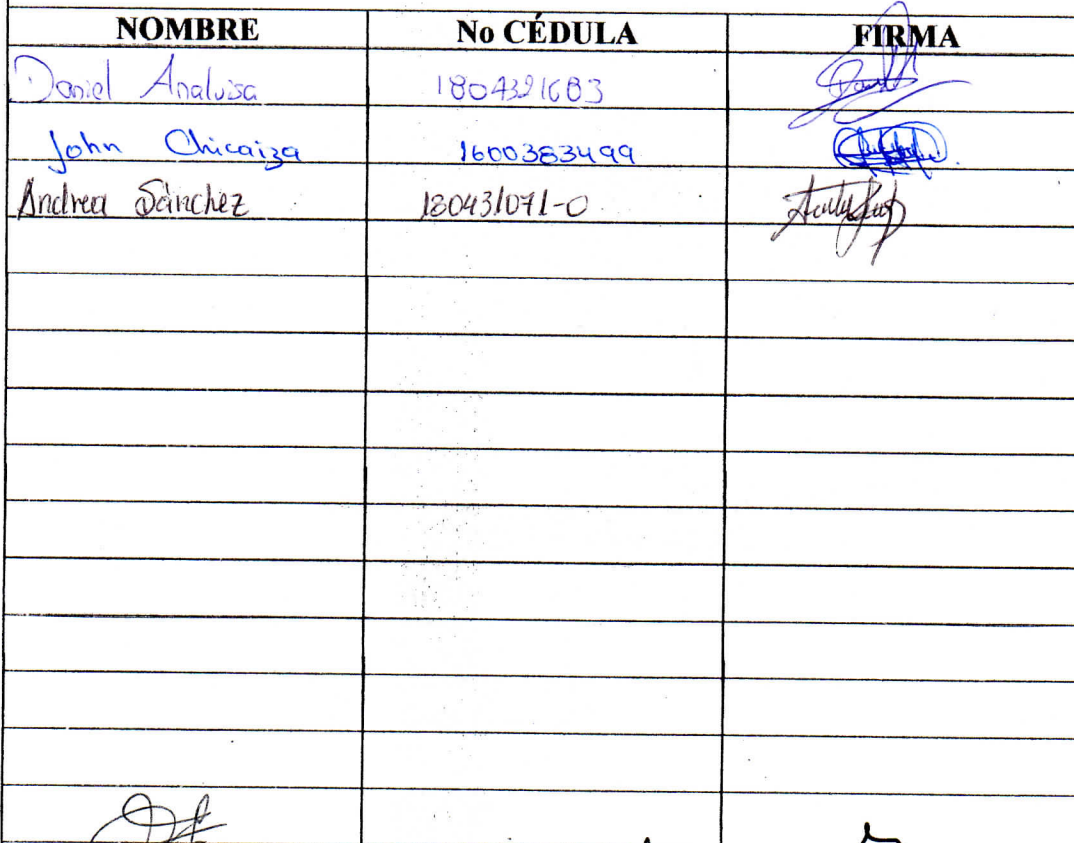 NOMBRE No CÉDULA FIRMA
Daniel Analuisa 1804321683
John Chicaiza 1600383499
Andrea Sánchez 180431071-0